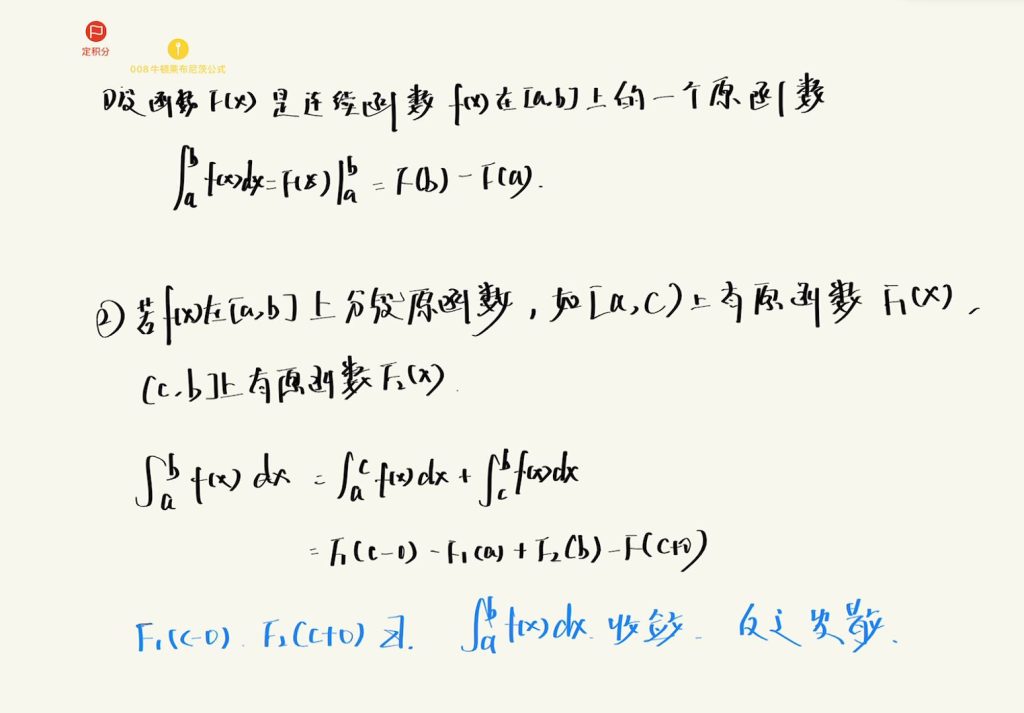 定积分
008牛顿莱布尼茨公式
①设函数F(x)是连续函数f(x)在[a,b]上的一个原函数
∫_a^b f(x)dx=F(x)|_a^b = F(b)-F(a).
②若f(x)在[a,b]上分段原函数,如[a,c)上有原函数F₁(x),
(c,b]上有原函数F₂(x).
∫_a^b f(x)dx = ∫_a^c f(x)dx + ∫_c^b f(x)dx
= F₁(c-0) - F₁(a) + F₂(b) - F(c+0)
F₁(c-0). F₂(c+0)∃. ∫_a^b f(x)dx 收敛. 反之发散.